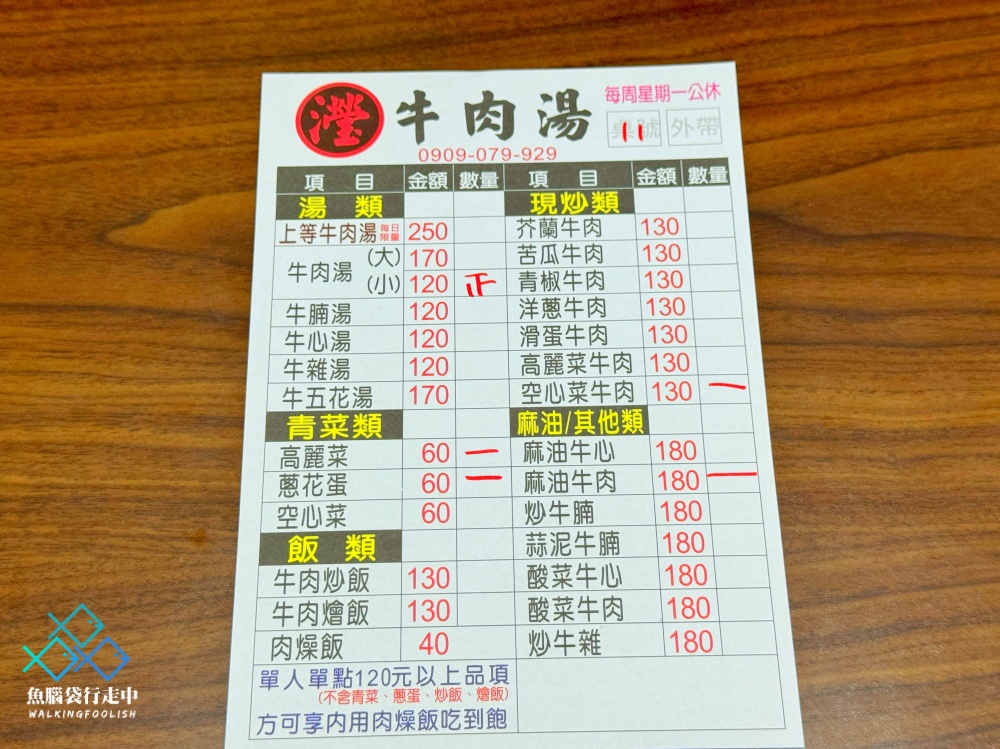 瀅 牛肉湯 每周星期一公休
桌號 11 外帶
0909-079-929
項目 金額 數量 項目 金額 數量
湯類 現炒類
上等牛肉湯 每日限量 250 芥蘭牛肉 130
牛肉湯 (大) 170 苦瓜牛肉 130
(小) 120 正 青椒牛肉 130
牛腩湯 120 洋蔥牛肉 130
牛心湯 120 滑蛋牛肉 130
牛雜湯 120 高麗菜牛肉 130
牛五花湯 170 空心菜牛肉 130 一
青菜類 麻油/其他類
高麗菜 60 一 麻油牛心 180
蔥花蛋 60 一 麻油牛肉 180 一
空心菜 60 炒牛腩 180
飯類 蒜泥牛腩 180
牛肉炒飯 130 酸菜牛心 180
牛肉燴飯 130 酸菜牛肉 180
肉燥飯 40 炒牛雜 180
單人單點120元以上品項
(不含青菜、蔥蛋、炒飯、燴飯)
方可享内用肉燥飯吃到飽
魚腦袋行走中
WALKINGFOOLISH